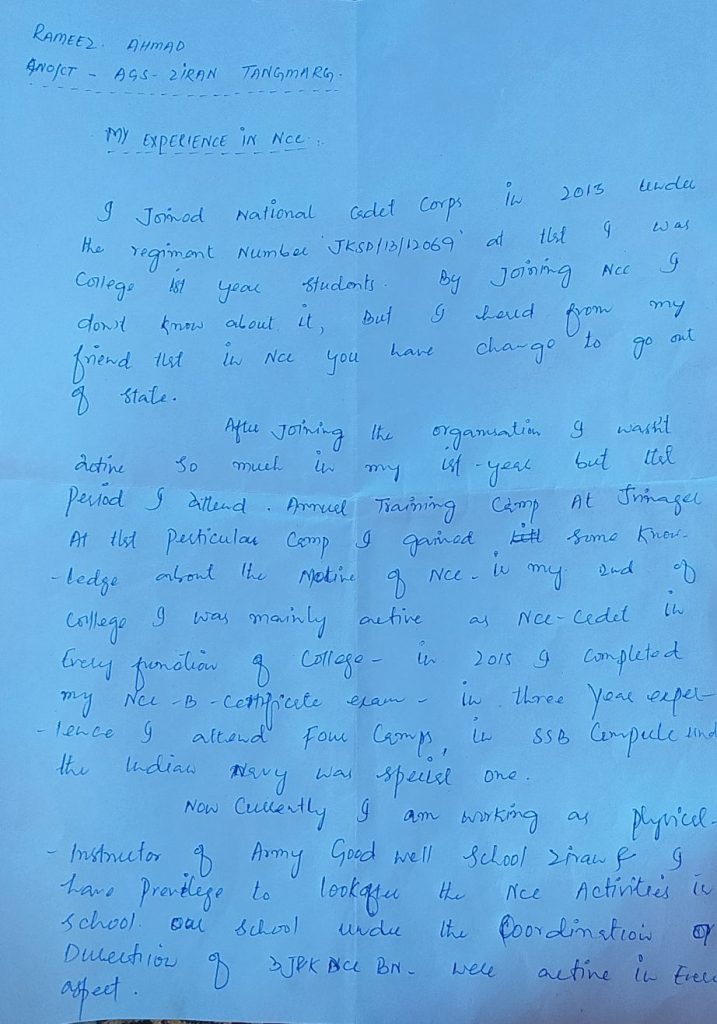 RAMEEZ. AHMAD
ANO/CT - AGS - ZIRAN TANGMARG.
MY EXPERIENCE IN NCC :.
I Joined National Cadet Corps in 2013 under
the regiment Number 'JKSD/13/12069' at that I was
College 1st year students. By Joining Ncc I
don't know about it, But I heard from my
friend that in Ncc you have change to go out
of state.
After Joining the organisation I wasn't
active so much in my 1st-year but that
Period I attend. Annual Training Camp At Srinager
At that Perticular Camp I gained some Know-
-ledge about the Motive of NCC. in my 2nd of
College I was mainly active as NCC-Cedet in
Every function of College - in 2015 I completed
my NCC-B-Certificate exam - in three Year exper-
-ience I attend Four Camps, in SSB
the Indian Navy was speciel one.
Now Currently I am working as physical-
-Instructor of Army Good well School Ziran & I
have Previlege to lookafter the NCC Activities in
school. our school under the Coordination of
Direction of 3J&K NCC BN. were active in Every
aspect.